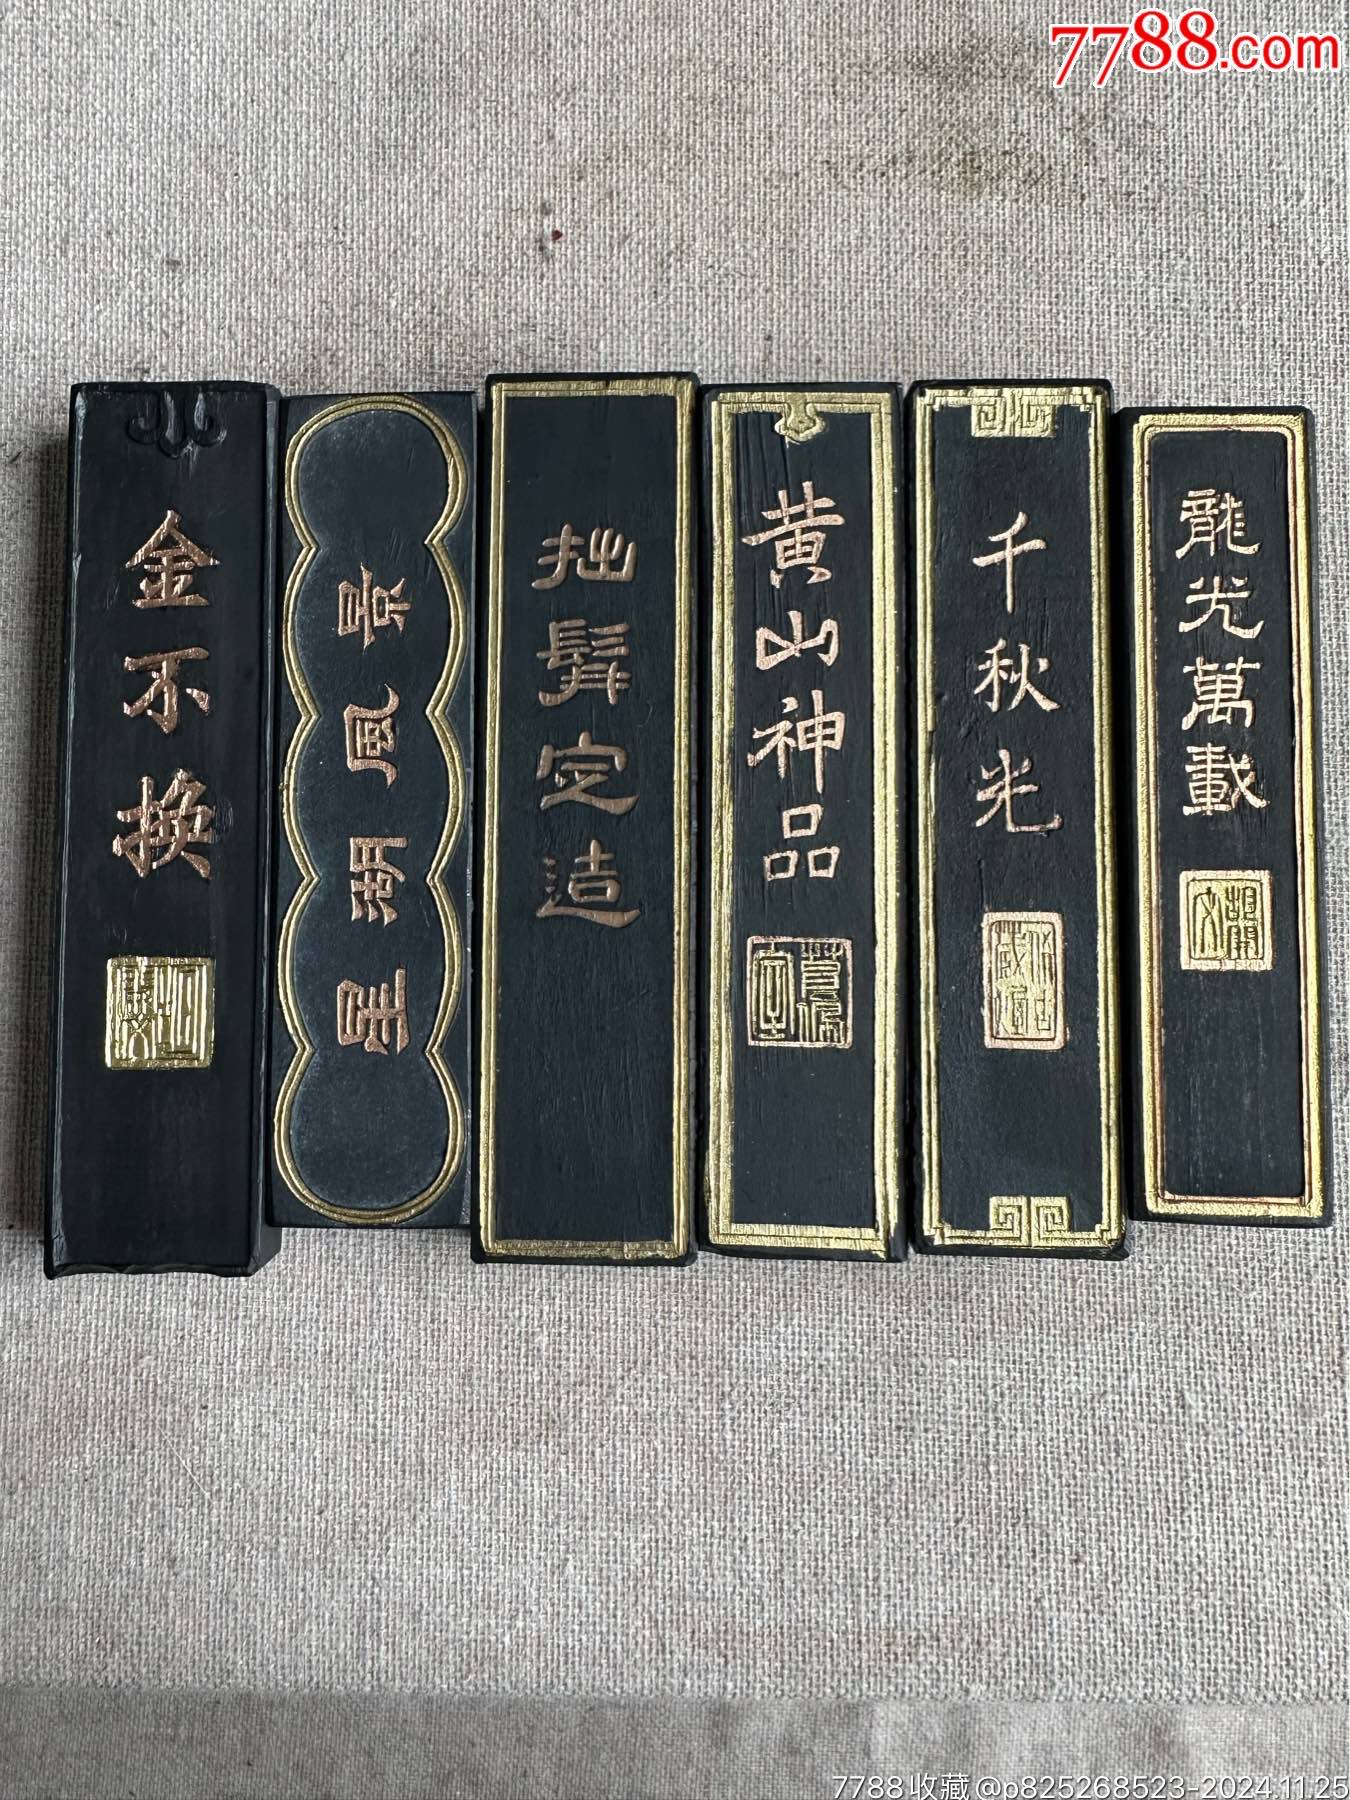 7788.com
金不换
星湖風景
拙髯定造
黄山神品
千秋光
龍光萬載
胡開文
7788收藏@p825268523-2024.11.25